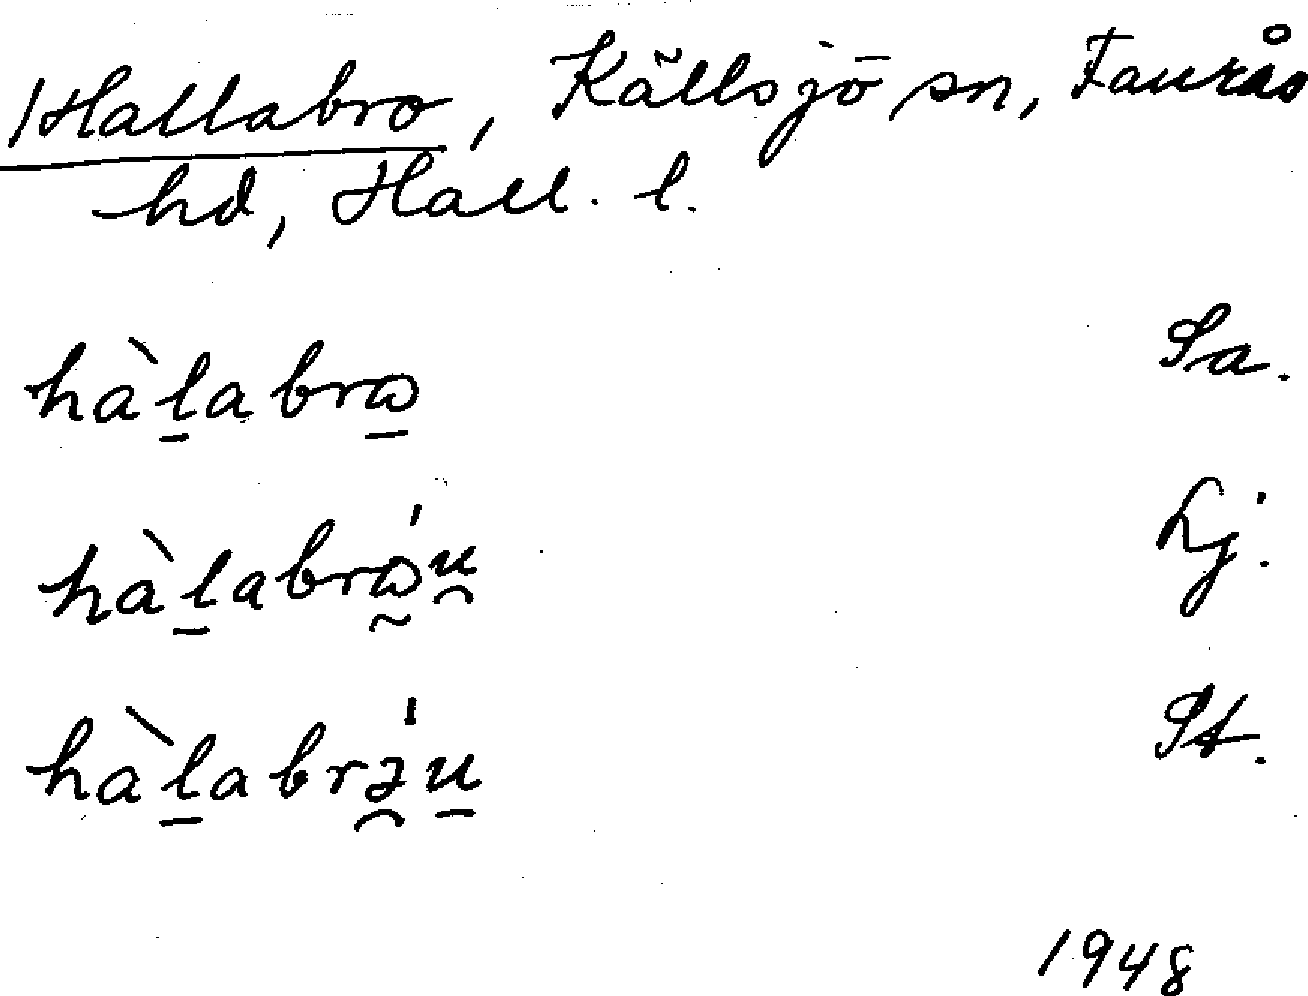 Hallabro, Källsjö sn, Faurås
hd, Hall. l.
hàl̠abrɷ̠ Sa.
hàl̠abrɷ̰́u̯ Lj.
hàl̠abrə̯́u̠ St.
1948